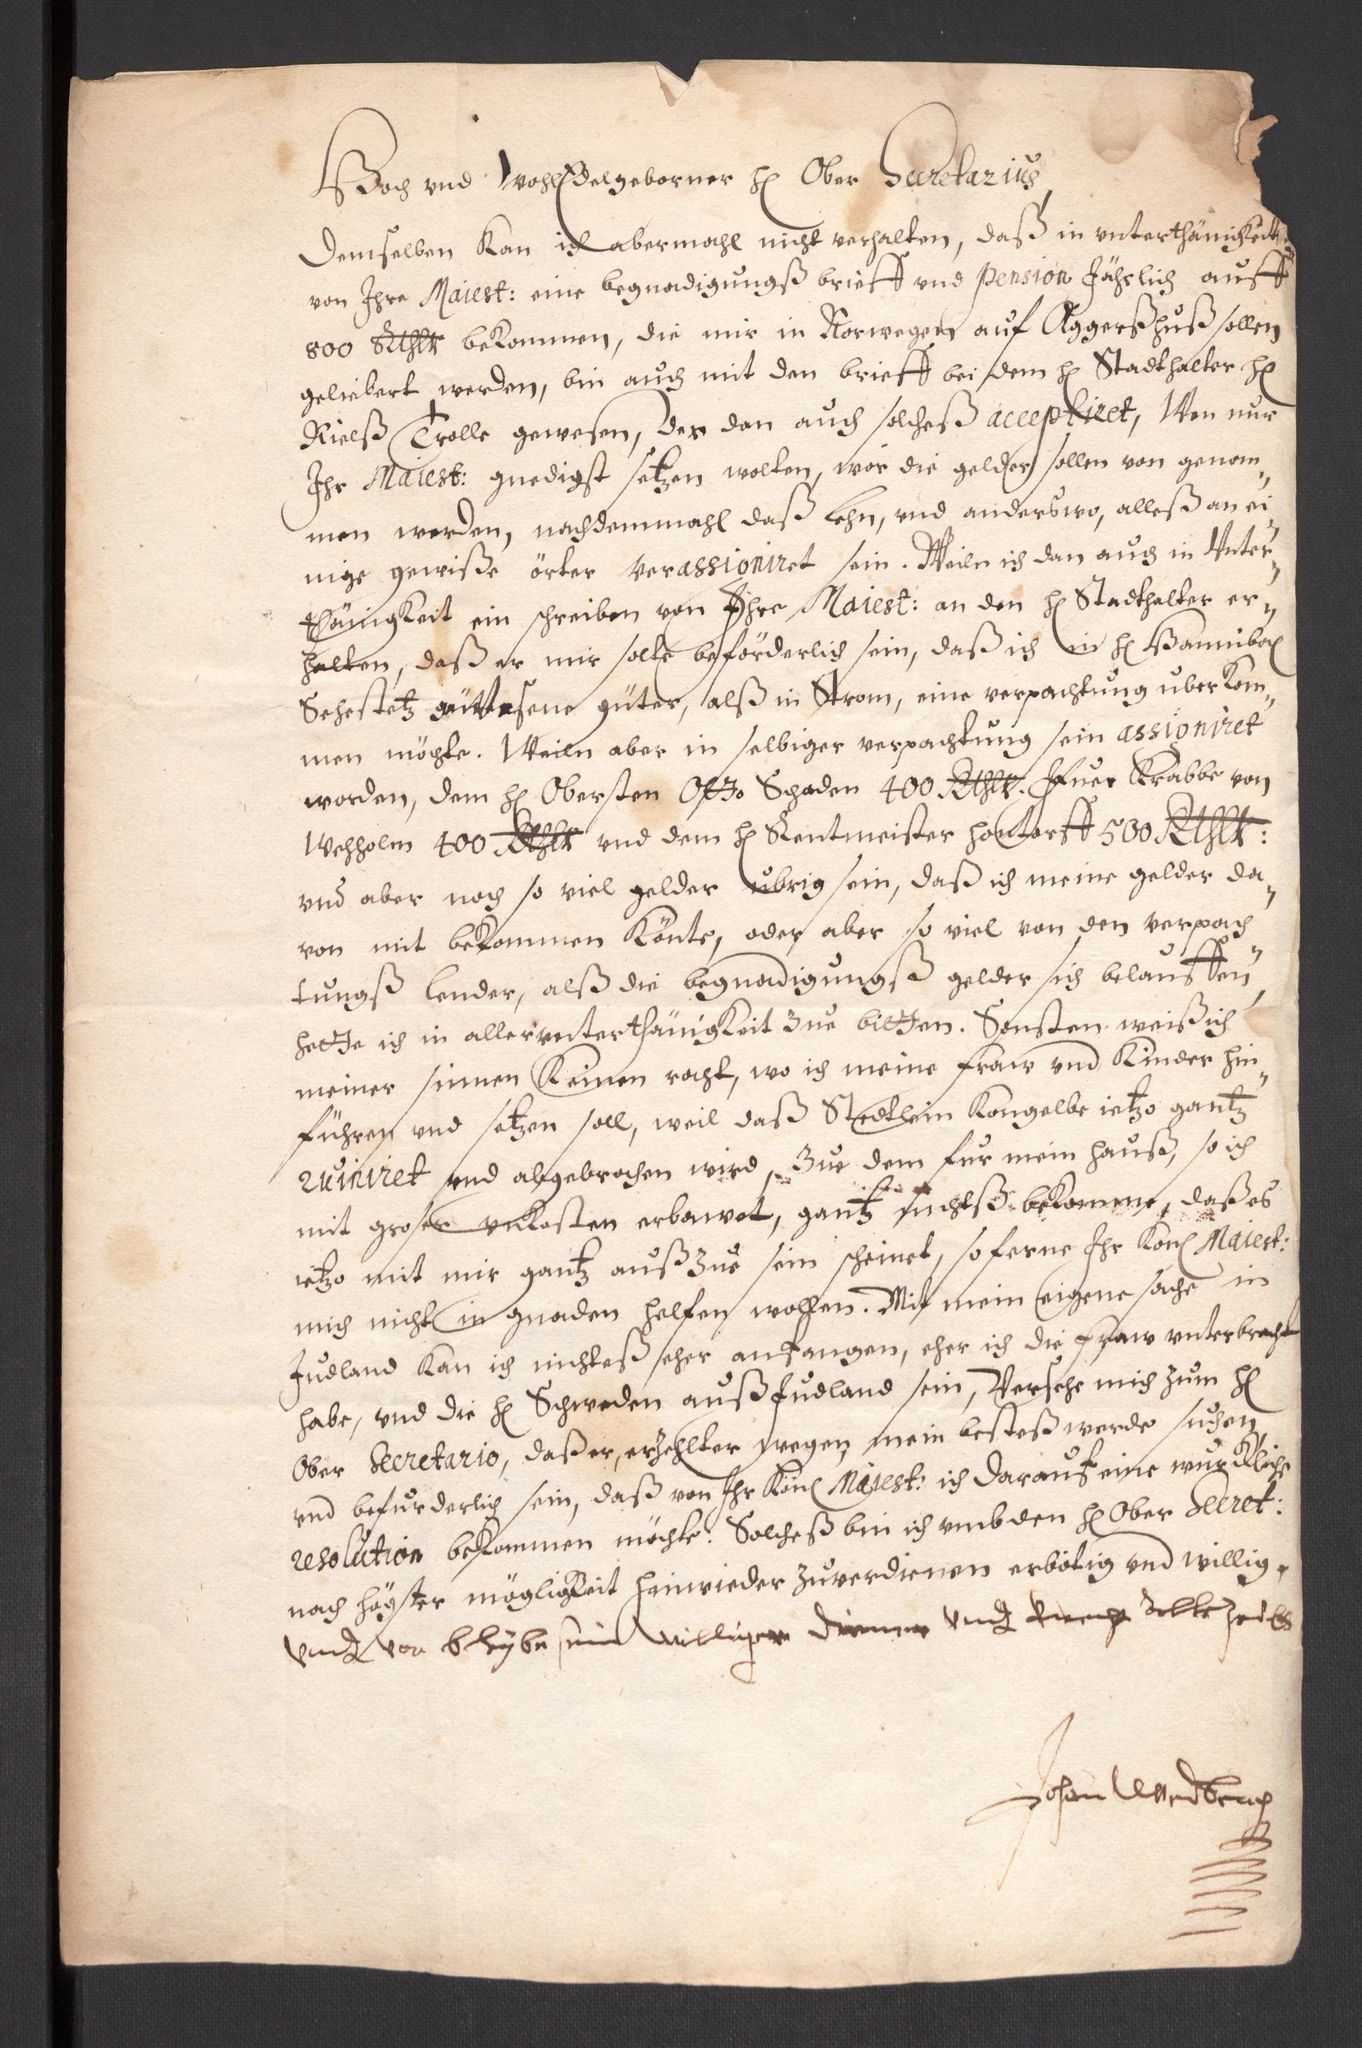 Hoch vnd WohlEdelgeborner H Ober Secretarius
Demselben Kan ich abermahl nicht verhalten, daß in vnterthänigkeit
von Ihre Maiest: eine begnadigungß brieff vnd pension Jährlich auff
800 Rthlr bekommen, die mir in Norwegen auf Aggerßhuß sollen
geliebert werden, bin auch mit den brieff bei dem H Stadthalter H
Nielß Trolle gewesen, Der dan auch solcheß acceptiret, Wen nur
Ihr Maiest: gnedigst setzen wolten, wor die gelder sollen von genom¬
men werden, nachdemmahl daß Lehn, vnd anderswo, alleß an ei¬
nige gewiße örter verassioniret sein. Weiln ich dan auch in Vnter¬
thänigkeit ein schreiben von Ihre Maiest: an den H Stadthalter er¬
halten, daß er mir solte beförderlich sein, daß ich in H Hannibal
Sehestetz gewesene güter, alß in Strom, eine verpachtung uberkom¬
men möchte. Weiln aber in selbiger verpachtung sein assioniret
worden, dem H Obersten Otto Schaden 400 Rthlr. Ifuer Krabbe von
Wehholm 400 Rthlr vnd dem H Rentmeister Hontorff 500 Rthlr:
vnd aber noch so viel gelder ubrig sein, daß ich meine gelder da¬
von mit bekommen könte, oder aber so viel von den verpach¬
tungß lender, alß die begnadigungß gelder sich belauffen,
hette ich in allervnterthänigkeit zue bitten. Sonsten weiß ich
meiner sinnen keinen racht, wo ich meine fraw vnd kinder hin¬
führen vnd setzen soll, weil daß Stedtlein Kongelbe ietzo gantz
ruiniret vnd abgebrochen wird, zue dem fur mein hauß, so ich
mit groser vnkosten erbawet, gantz nichtß bekomme, daß es
ietzo mit mir gantz auß zue sein scheinet, so ferne Ihr Kön Maiest:
mich nicht in gnaden helfen wollen. Mit mein eigene sache in
Judland kan ich nichteß eher anfangen, eher ich die fraw vnterbracht
habe, vnd die H Schweden auß Judland sein, Versehe mich zum H
Ober Secretario, daß er, erzehlter wegen, mein besteß werde suchen,
vnd befurderlich sein, daß von Ihr Kön Maiest: ich darauf eine wurckliche
resolution bekommen möchte. Solcheß bin ich vmb den H Ober Secret:
nach högster mögligkeit hinwieder zuverdienen erbötig vnd willig.
vndt vor blÿbe sin williger diener vndt alle zeitt
Johan